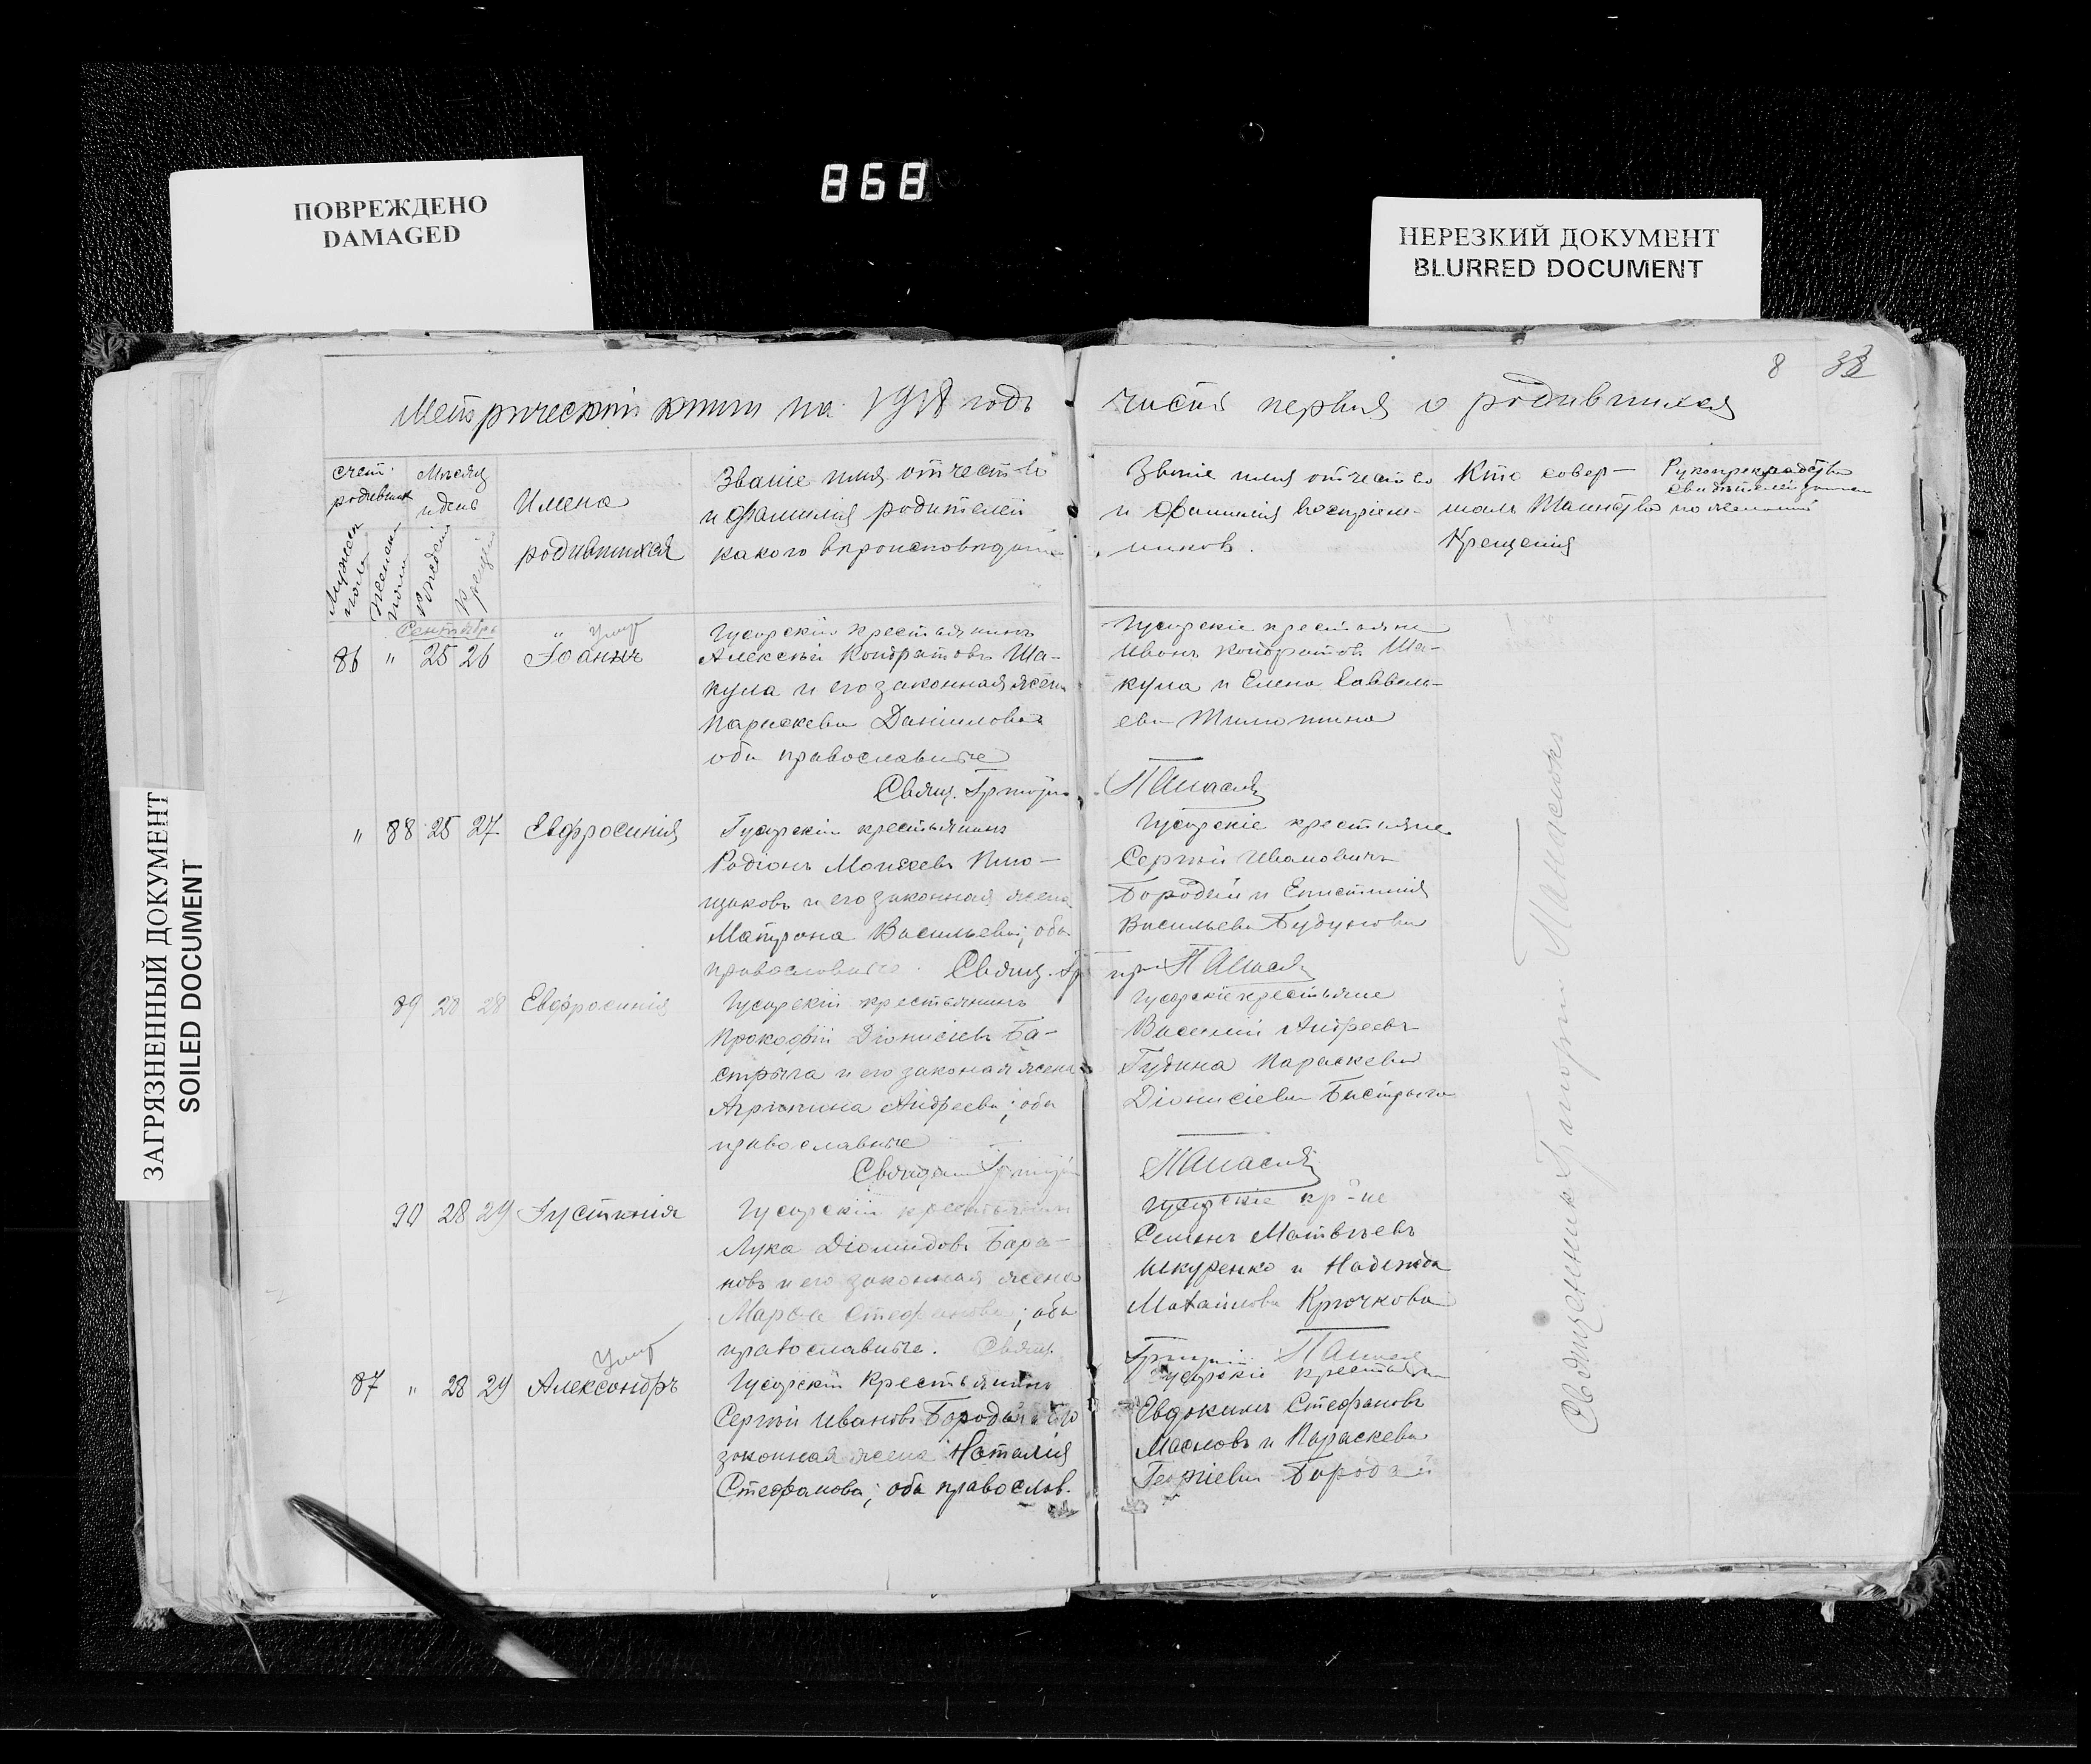 868
ПОВРЕЖДЕНО
DAMAGED
НЕРЕЗКИЙ ДОКУМЕНТ
BLURRED DOCUMENT
ЗАГРЯЗНЕННЫЙ ДОКУМЕНТ
SOILED DOCUMENT
8 33
на 1918 годъ
часть первая о родившихся
счет
родившихся
Мужеска пола
Женска пола
Мѣсяц
и день
Рожденія
Крещенія
Имена
родившихся
Званіе имя отчество
и фамилія родителей
какого вѣроисповѣданія
Званіе имя отчество
и фамилія воспріем-
никовъ.
Кто совер-
шалъ Таинство
Крещенія
Рукоприкладство
свидѣтелей записи
по желанію
Сентябрь
86 " 25 26 Іоаннъ
Умер
крестьянинъ
Алексѣй Кондратовъ Ша-
кула и его законная жена
Параскева Даніилова
оба православные
Свящ. Григорій
крестьяне
Иванъ Кондратовъ Ша-
кула и Елена Саввель-
ева
" 88 25 27 Евфросинія
крестьянинъ
Родіонъ Моисеевъ
и его законная жена
Матрона Васильева; оба
православные. Свящ.
крестьяне
Сергѣй Ивановичъ
Бородай и Епистимія
Васильева
89 28 28 Евфросинія
крестьянинъ
Прокофій Діонисіевъ Ба-
стрыга и его законая жена
Агрипина Андреева; оба
православные
Священ Григорій
крестьяне
Василій Андреевъ
Гудина Параскева
Діонисіева Бастрыга
90 28 29 Іустинія
крестьянинъ
Лука Діомидовъ Бара-
новъ и его законная жена
Марфа Стефанова; оба
православные. Свящ.
кр-не
Семенъ Матвѣевъ
Шкуренко и Надежда
Крючкова
Григорій
87 " 28 29 Александръ
Умер
крестьянинъ
Сергѣй Ивановъ Бородай и его
законная жена Наталія
Стефанова; оба православ.
крестьяне
Евдокимъ Стефановъ
Масловъ и Параскева
Георгіева Бородай
Священникъ Григорій